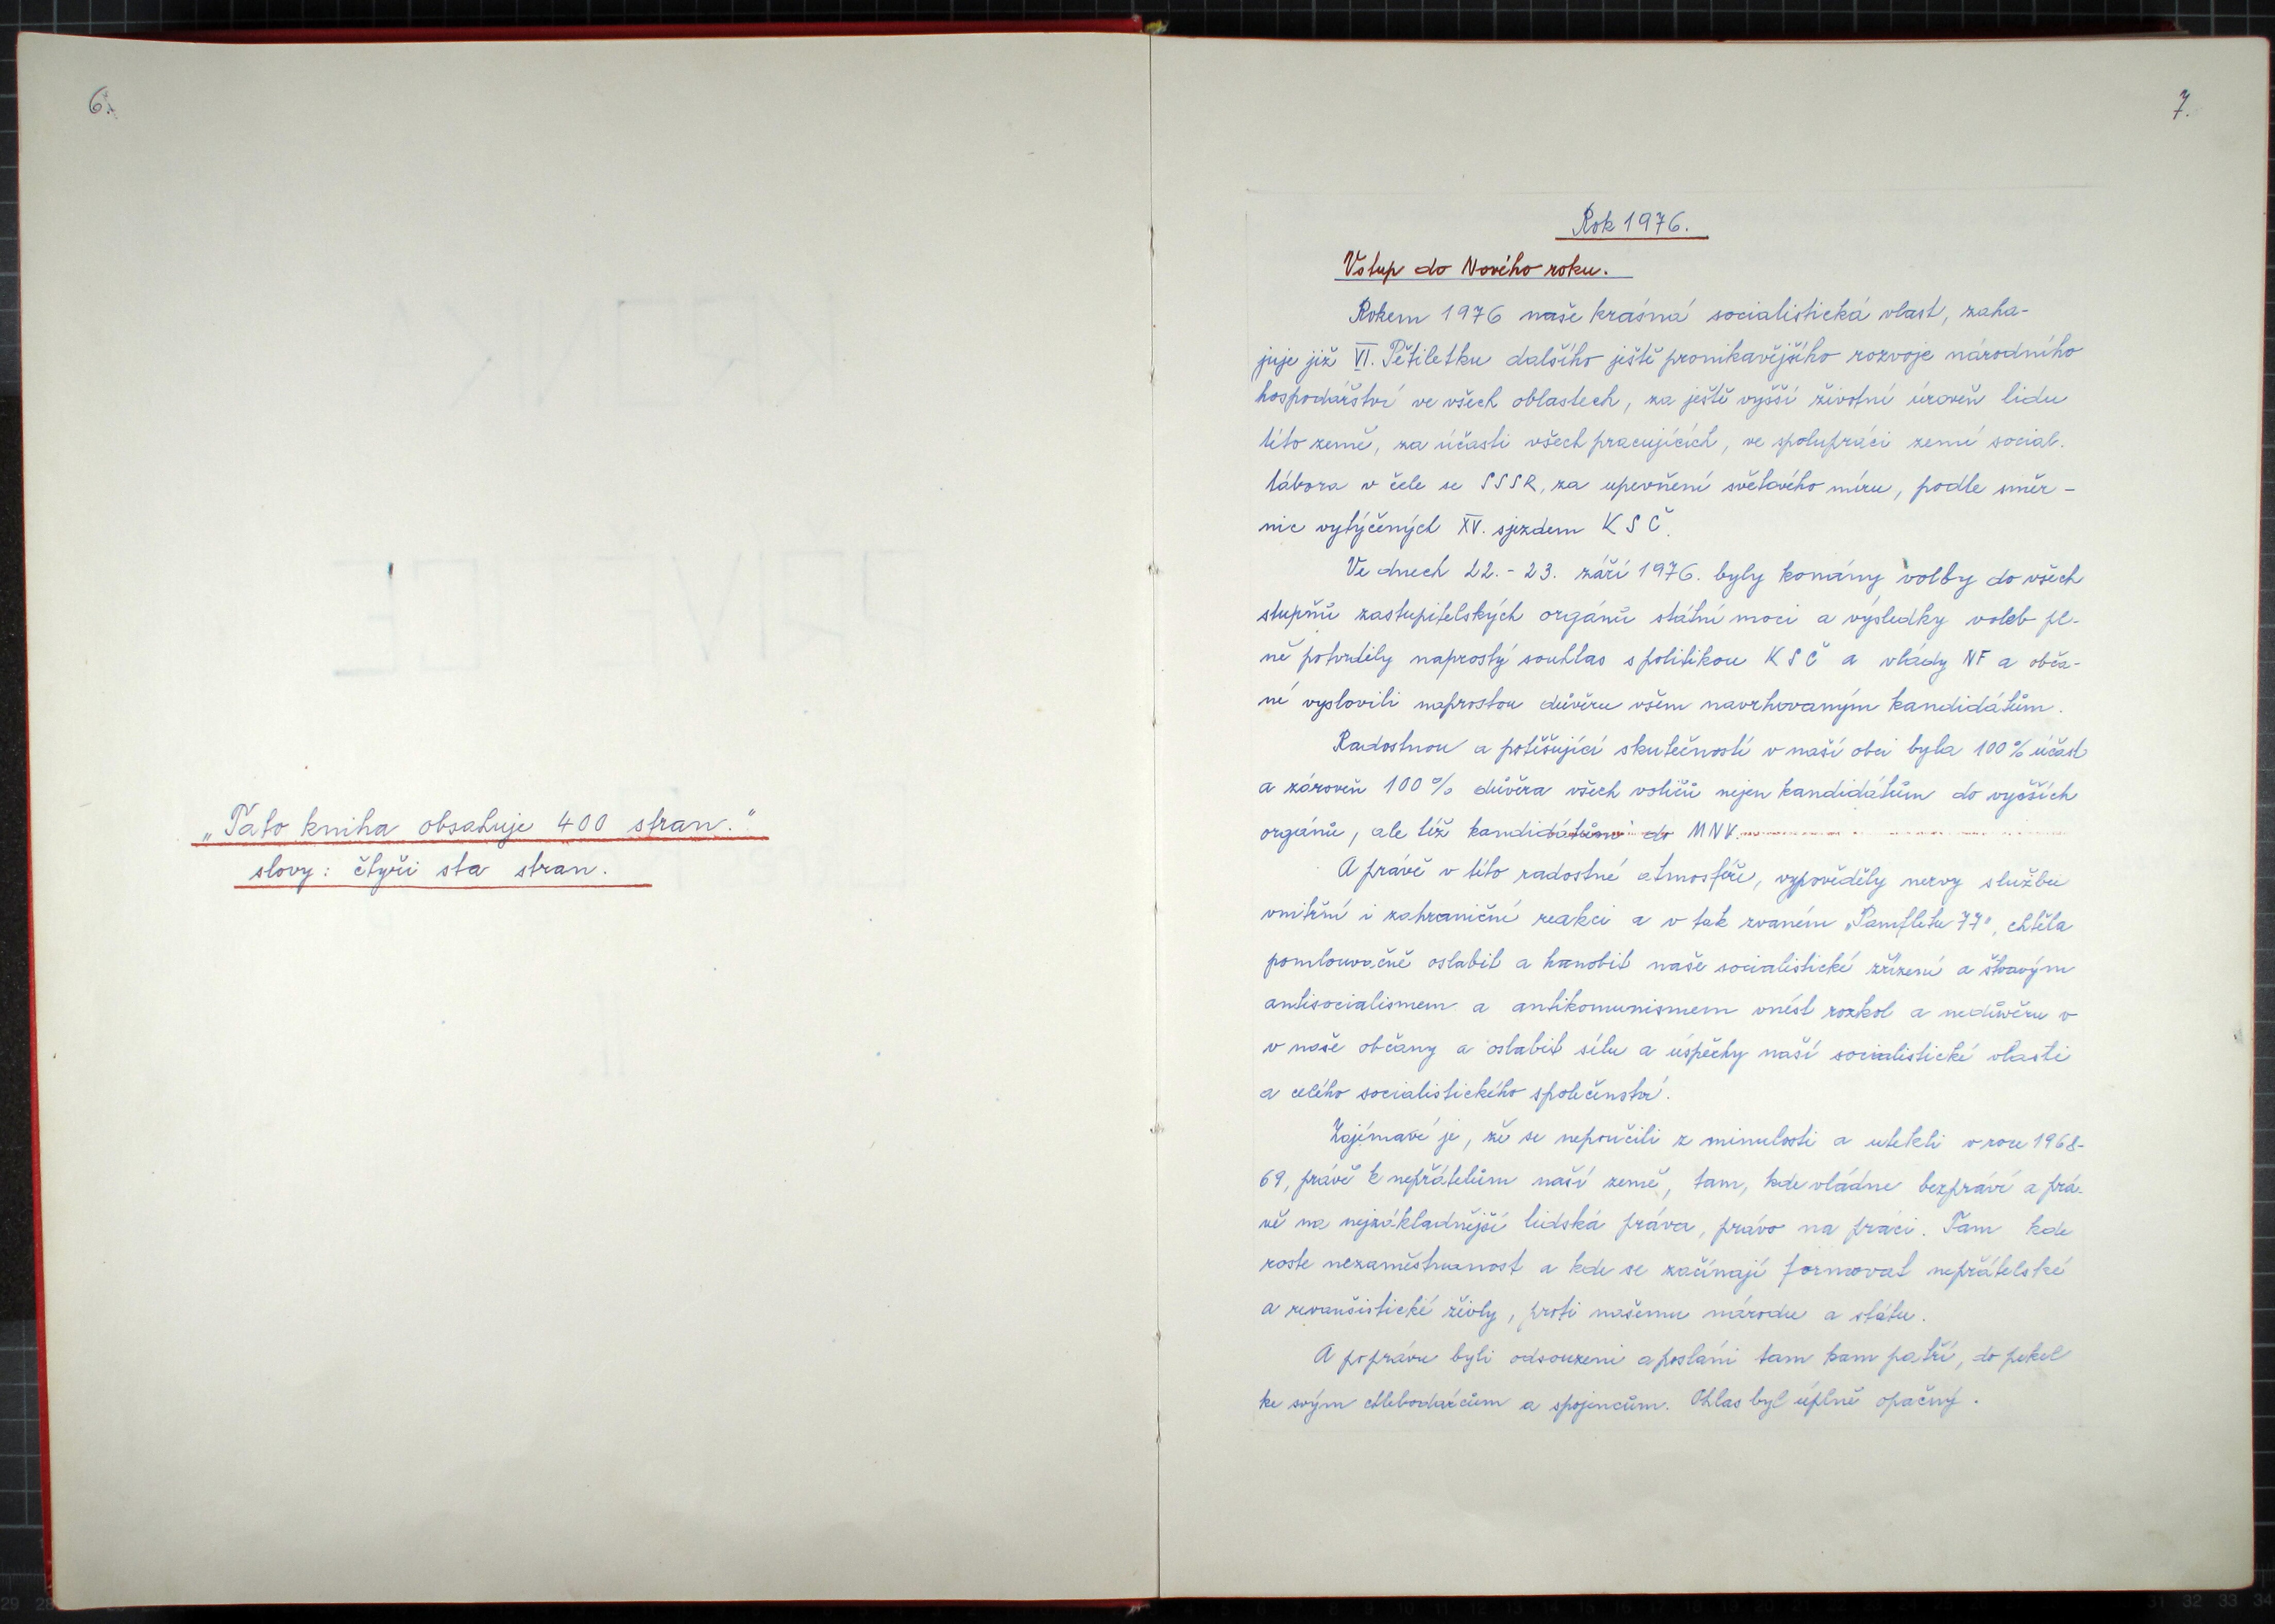 6.
„Tato kniha obsahuje 400 stran."
slovy: čtyři sta stran.
7.
Rok 1976.
Vstup do Nového roku.
Rokem 1976 naše krásná socialistická vlast, zaha-
juje již VI. Pětiletku dalšího ještě pronikavějšího rozvoje národního
hospodářství ve všech oblastech, za ještě vyšší životní úroveň lidu
této země, za účasti všech pracujících, ve spolupráci zemí social.
tábora v čele se SSSR, za upevnění světového míru, podle směr-
nic vytýčených XV. sjezdem KSČ.
Ve dnech 22.-23. září 1976. byly konány volby do všech
stupňů zastupitelských orgánů státní moci a výsledky voleb pl-
ně potvrdily naprostý souhlas s politikou KSČ a vlády NF a obča-
né vyslovili naprostou důvěru všem navrhovaným kandidátům.
Radostnou a potěšující skutečností v naší obci byla 100% účast
a zároveň 100% důvěra všech voličů nejen kandidátům do vyšších
orgánů, ale též kandidátům do MNV.
A právě v této radostné atmosféře, vypověděly nervy službu
vnitřní i zahraniční reakci a v tak zvaném „Pamfletu 77", chtěla
pomlouvačně oslabit a hanobit naše socialistické zřízení a štvavým
antisocialismem a antikomunismem vnést rozkol a nedůvěru v
v naše občany a oslabit sílu a úspěchy naší socialistické vlasti
a celého socialistického společenství.
Zajímavé je, že se nepoučili z minulosti a utekli v roce 1968-
69, právě k nepřátelům naší země, tam, kde vládne bezpráví a prá-
vě na nejzákladnější lidská práva, právo na práci. Tam kde
roste nezaměstnanost a kde se začínají formovat nepřátelské
a revanšistické živly, proti našemu národu a státu.
A poprávu byli odsouzeni a posláni tam kam patří, do pekel
ke svým chlebodárcům a spojencům. Ohlas byl úplně opačný.